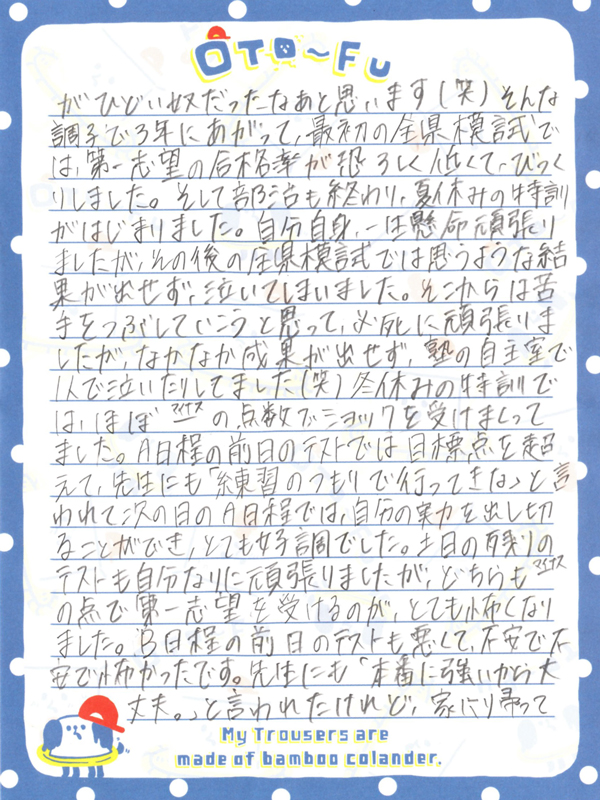 OTO~FU
がひどい奴だったなあと思います(笑)そんな
調子で3年にあがって、最初の全県模試で
は、第一志望の合格率が恐ろしく低くて、びっく
りしました。そして部活も終わり、夏休みの特訓
がはじまりました。自分自身、一生懸命頑張り
ましたが、その後の全県模試では思うような結
果が出せず、泣いてしまいました。そこからは苦
手をつぶしていこうと思って、必死に頑張りま
したが、なかなか成果が出せず、塾の自主室で
1人で泣いたりしてました(笑)冬休みの特訓で
は、ほぼ ー(マイナス) の点数でショックを受けまくって
ました。A日程の前日のテストでは目標点を超
えて、先生にも「練習のつもりで行ってきな」と言
われて次の日のA日程では、自分の実力を出し切
ることができ、とても好調でした。土日の残りの
テストも自分なりに頑張りましたが、どちらも ー(マイナス)
の点で第一志望を受けるのが、とても怖くなり
ました。B日程の前日のテストも悪くて、不安で不
安で怖かったです。先生にも「本番に強いから大
丈夫。」と言われたけれど、家に帰って
My Trousers are
made of bamboo colander.